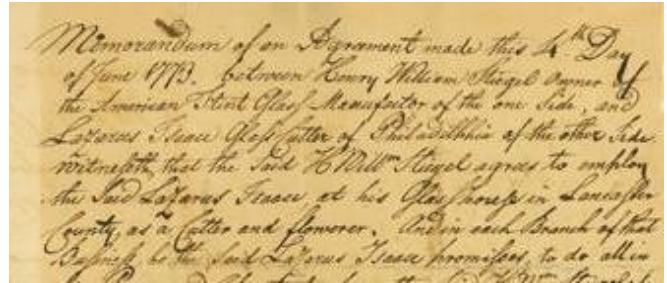 Memorandum of an Agreement made this 4th Day
of June 1773. between Henry William Stiegel owner of
the American Flint Glass Manufactor of the one Side, and
Lazarus Isaac Glass Cutter of Philadelphia of the other Side
Witnesseth, that the Said H Willm Stiegel agrees to employ
the Said Lazarus Isaac, at his Glasshouse in Lancaster
County, as a Cutter and flowerer. And in each Branch of that
Business, he the Said Lazarus Isaac promisses, to do all in